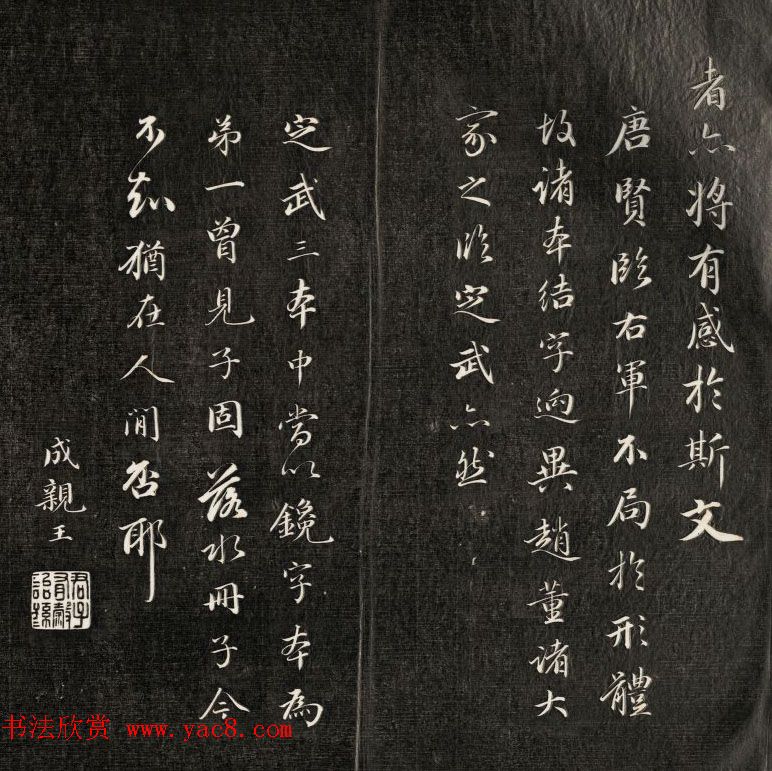 者亦將有感於斯文
唐賢臨右軍不局於形體
故諸本結字迥異趙董諸大
家之臨定武亦然
定武三本中當以鑱字本為
弟一曾見子固落水冊子今
不知猶在人間否耶
成親王
詒晉齋
书法欣赏 www.yac8.com